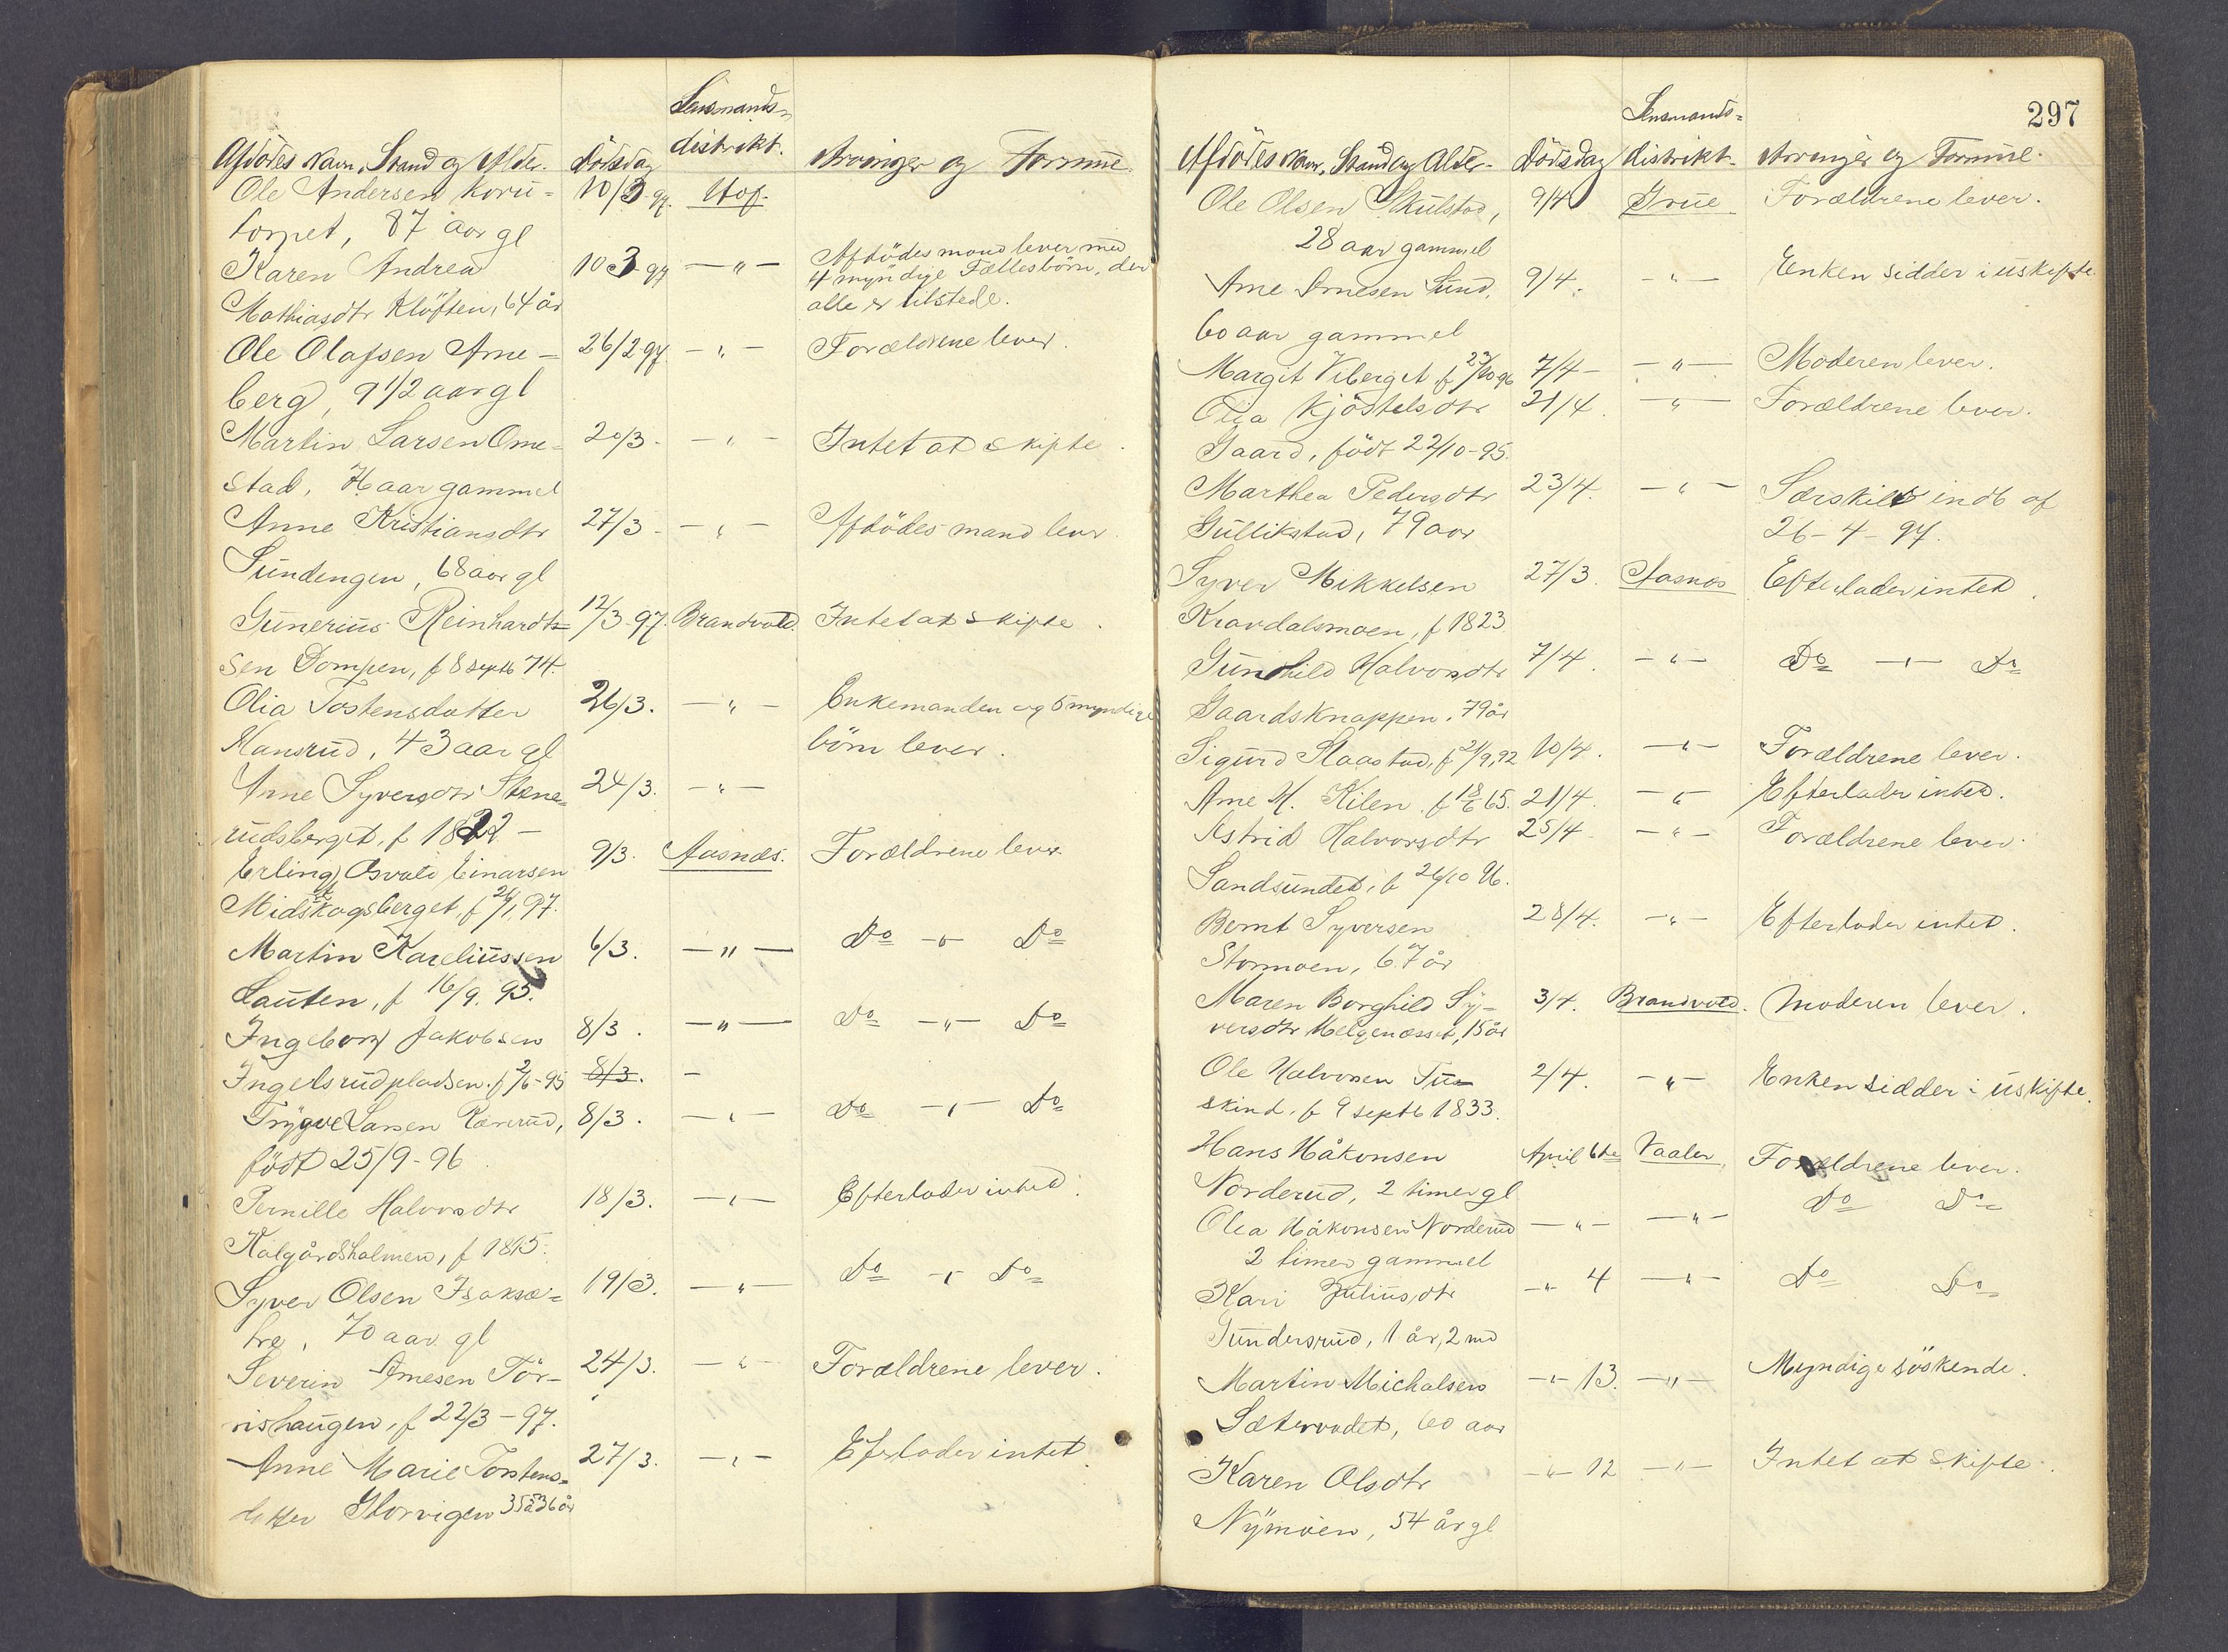 Lensmands-
distrikt.
Afdødes Navn, Stand og Alder. Dödsdag Arvinger og Formue.
Ole Andersen Koru- 10/3-97. Hof.
torpet, 87 aar gl
Karen Andrea 10 3-97 -"- Afdödes mand lever med
4 myndige Fællesbörn, der
Mathiasdtr Klöften, 64 år alle er tilstede.
Ole Olafsen Arne- 26/2-97 -"- Forældrene lever.
berg, 9 1/2 aar gl
Martin Larsen Ome- 20/3- -"- Intet at skifte.
stad, aar gammel
Anne Kristiansdtr 27/3- -"- Afdödes mand lever.
Sundengen, 68 aar gl
Gunerius Reinhardt- 12/3-97. Brandvold. Intet at skifte.
sen Dompen, f 8 septb 74.
Olia Tostensdatter 26/3. -"- Enkemanden og 5 myndige
Hansrud, 43 aar gl börn lever.
Anne Syversdtr Stene- 24/3. -"-
rudsberget, f 1822-
Erling Osvald Einarsen 9/3. Aasnæs. Forældrene lever
Midskogsberget, f 21/1 97.
Martin Kareliussen 6/3. -"- Do -"- Do
Lauten, f 16/9. 95.
Ingeborg Jakobsen 8/3. -"- Do -"- Do
Ingelsrudpladsen. f 2/6-95 8/3. -
Trygve Larsen Rærerud, 8/3. -"- Do -"- Do
födt 25/9-96
Pernille Halvorsdtr 18/3. -"- Efterlader intet.
Kalgårdsholmen, f 1815.
Syver Olsen Isaksæ- 19/3. -"- Do -"- Do
tre, 70 aar gl
Severin Arnesen Tör- 24/3. -"- Forældrene lever.
rishaugen, f 22/3-97.
Anne Marie Torstens- 27/3. -"- Efterlader intet.
datter Storvigen 35 a 36 år
297
Lensmands-
Afdödes Navn, Stand og Alder- Dödsdag distrikt- Arvinger og Formue.
Ole Olsen Skulstad, 9/4 Grue Forældrene lever.
28 aar gammel
Arne Arnesen Lund, 9/4. -"- Enken sidder i uskifte.
60 aar gammel
Margit Viberget, f 23/10 96 7/4- -"- Moderen lever.
Olia Kjöstelsdtr 21/4. -"- Forældrene lever.
Gaard, födt 22/10-95.
Marthea Pedersdtr 23/4. -"- Særskilt indb af
Gullikstad, 79 aar 26-4-97.
Syver Mikkelsen 27/3. Aasnæs Efterlader intet.
Kravdalsmoen, f 1823
Gunhild Halvorsdtr 7/4. -"- Do -"- Do
Gaardsknappen, 79 år
Sigurd Staastad, f 21/9, 92 10/4. -"- Forældrene lever.
Arne H. Kilen, f 18/6 65. 21/4. -"- Efterlader intet.
Astrid Halvorsdtr 25/4- -"- Forældrene lever.
Sandsundet, f 26/10 96.
Bernt Syversen 28/4. -"- Efterlader intet.
Stormoen, 67 år
Maren Borghild Sy- 3/4. Brandvold. Moderen lever.
versdtr Helgenæsset, 15 år
Ole Halvorsen Tu- 2/4. -"- Enken sidder i uskifte.
skind, f 9 septb 1833.
Hans Håkonsen April 6te Vaaler Forældrene lever.
Norderud, 2 timer gl
Olea Håkonsen Norderud -"- -"- Do Do
2 timer gammel
Kari Juliusdtr -"- 4 -"- Do Do
Gundersrud, 1 år, 2 md
Martin Michalsen -"- 13. -"- Myndige söskende.
Sætervadet, 60 aar
Karen Olsdtr -"- 12 -"- Intet at skifte.
Nymoen, 54 år gl